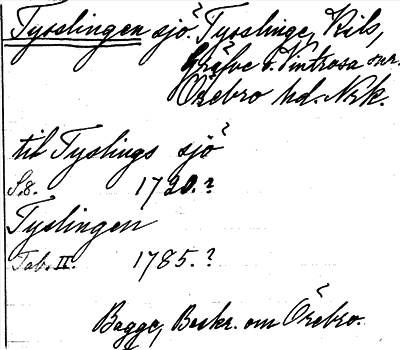 Tysslingen sjö. Tysslinge, Kils,
Gräfve o. Vintrosa snr.
Örebro hd. Nrk.
til Tyslings sjö
S.8. 1720.?
Tyslingen
Tab. II. 1785.?
Bagge, Beskr. om Örebro.